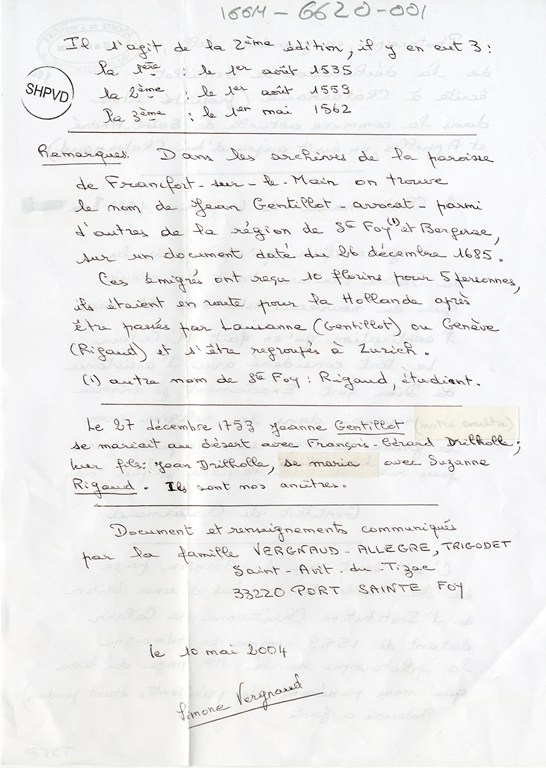 166M - 6620-001
Il s'agit de la 2ème édition, il y en eut 3 :
La 1ère : le 1er août 1535
SHPVD
la 2ème : le 1er août 1559
La 3ème : le 1er mai 1562
Remarques : Dans les archives de la paroisse
de Francfort-sur-le-Main on trouve
le nom de Jean Gentillot - avocat - parmi
d'autres de la région de Ste Foy (1) et Bergerac,
sur un document daté du 26 décembre 1685.
Ces émigrés ont reçu 10 florins pour 5 personnes,
ils étaient en route pour la Hollande après
être passés par Lausanne (Gentillot) ou Genève
(Rigaud) et s'être regroupés à Zurich.
(1) autre nom de Ste Foy : Rigaud, étudiant.
Le 27 décembre 1753 Jeanne Gentillot
se mariait au désert avec François-Gérard Drilholle ;
leur fils : Jean Drilholle, se maria avec Suzanne
Rigaud. Ils sont nos ancêtres.
Document et renseignements communiqués
par la famille VERGNAUD - ALLEGRE, TRIGODET
Saint-Avit. du Tizac
33220 PORT SAINTE FOY
le 10 mai 2004
Simone Vergnaud